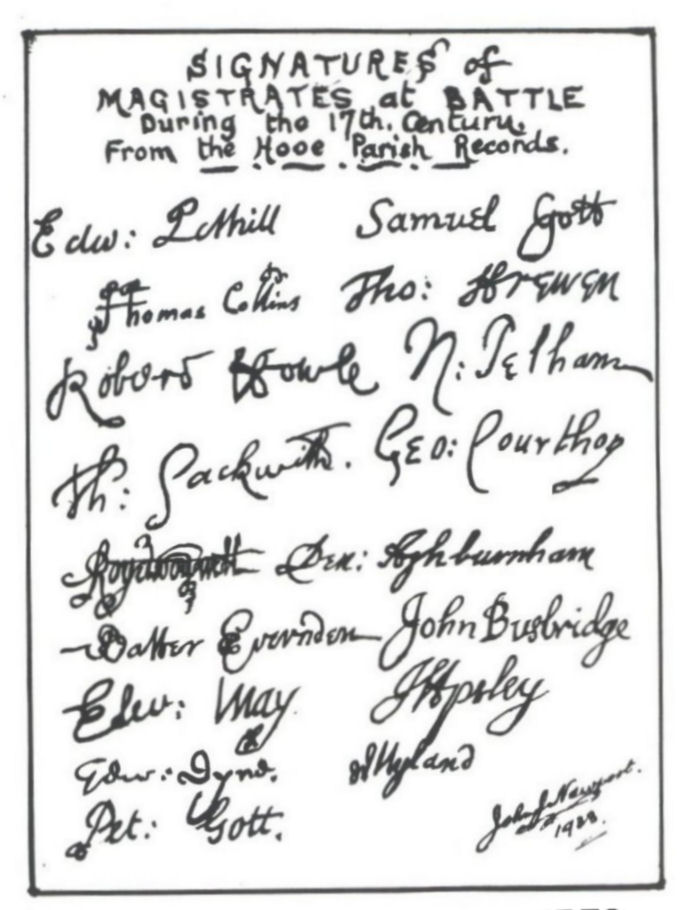 SIGNATURES of
MAGISTRATES at BATTLE
During the 17th. Century.
From the Hooe Parish Records.
Edw: Samuel Gott
Thomas Collins Tho: Frewen
Robert Fowle N: Pelham
Th: Sackvill. Geo: Courthop
Den: Ashburnham
Evernden John Busbridge
Edw: May JApsley
Edw: Dyne. Nyland
Pet: Gott.
John J Newport.